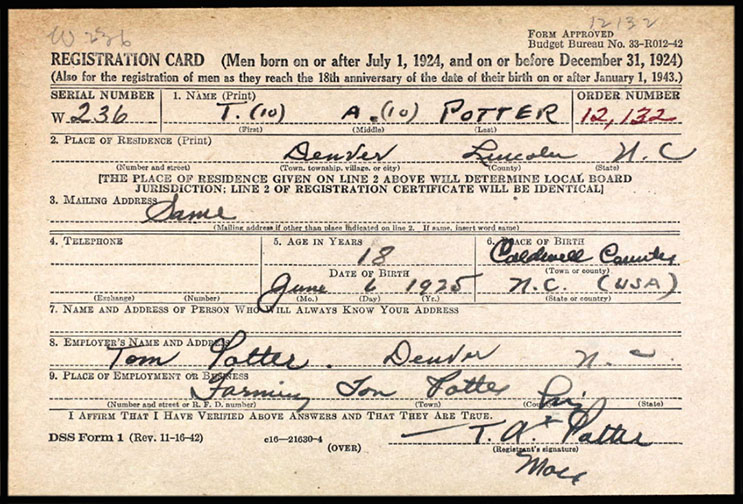 W 236
12132
FORM APPROVED
Budget Bureau No. 33-R012-42
REGISTRATION CARD (Men born on or after July 1, 1924, and on or before December 31, 1924)
(Also for the registration of men as they reach the 18th anniversary of the date of their birth on or after January 1, 1943.)
SERIAL NUMBER 1. NAME (Print) ORDER NUMBER
W 236 T. (IO) A. (IO) POTTER 12,132
(First) (Middle) (Last)
2. PLACE OF RESIDENCE (Print)
Denver Lincoln N. C
(Number and street) (Town, township, village, or city) (County) (State)
[THE PLACE OF RESIDENCE GIVEN ON LINE 2 ABOVE WILL DETERMINE LOCAL BOARD
JURISDICTION; LINE 2 OF REGISTRATION CERTIFICATE WILL BE IDENTICAL]
3. MAILING ADDRESS
Same
(Mailing address if other than place indicated on line 2. If same, insert word same)
4. TELEPHONE 5. AGE IN YEARS 6. PLACE OF BIRTH
18 Caldwell County
(Town or county)
DATE OF BIRTH
June 6 1925 N.C. (USA)
(Exchange) (Number) (Mo.) (Day) (Yr.) (State or country)
7. NAME AND ADDRESS OF PERSON WHO WILL ALWAYS KNOW YOUR ADDRESS
8. EMPLOYER'S NAME AND ADDRESS
Tom Potter. Denver N. C
9. PLACE OF EMPLOYMENT OR BUSINESS
Farming Tom Potter
(Number and street or R. F. D. number) (Town) (County) (State)
I AFFIRM THAT I HAVE VERIFIED ABOVE ANSWERS AND THAT THEY ARE TRUE.
DSS Form 1 (Rev. 11-16-42) c16—21630-4 T. A. x Potter
(OVER) (Registrant's signature)